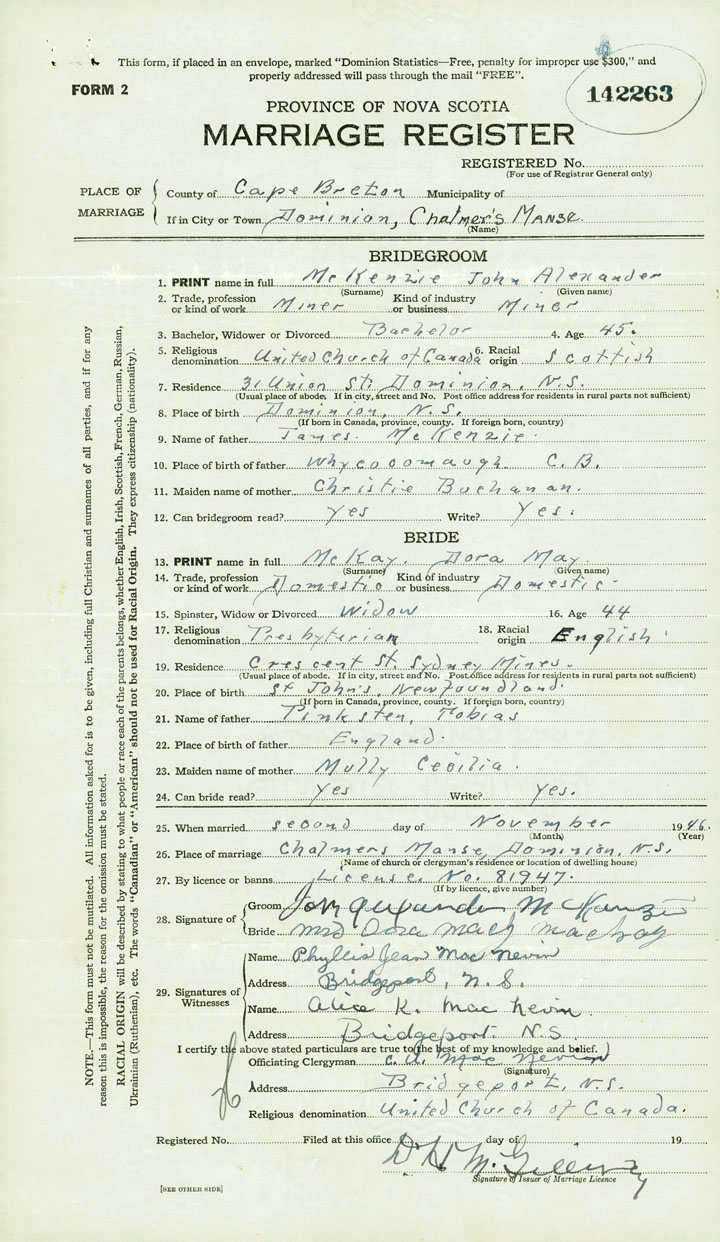 This form, if placed in an envelope, marked "Dominion Statistics—Free, penalty for improper use $300," and
properly addressed will pass through the mail "FREE".
FORM 2
142263
PROVINCE OF NOVA SCOTIA
MARRIAGE REGISTER
REGISTERED No.
(For use of Registrar General only)
PLACE OF MARRIAGE
County of Cape Breton Municipality of
If in City or Town Dominion, Chalmer's Manse.
(Name)
BRIDEGROOM
1. PRINT name in full McKenzie John Alexander
(Surname) (Given name)
2. Trade, profession or kind of work Miner Kind of industry or business Miner
3. Bachelor, Widower or Divorced Bachelor 4. Age 45.
5. Religious denomination United Church of Canada 6. Racial origin Scottish
7. Residence 31 Union St. Dominion, N.S.
(Usual place of abode. If in city, street and No. Post office address for residents in rural parts not sufficient)
8. Place of birth Dominion, N.S.
(If born in Canada, province, county. If foreign born, country)
9. Name of father James McKenzie.
10. Place of birth of father Whycocomaugh C. B.
11. Maiden name of mother Christie Buchanan.
12. Can bridegroom read? Yes Write? Yes.
BRIDE
13. PRINT name in full McKay, Dora May
(Surname) (Given name)
14. Trade, profession or kind of work Domestic Kind of industry or business Domestic
15. Spinster, Widow or Divorced Widow 16. Age 44
17. Religious denomination Presbyterian 18. Racial origin English
19. Residence Crescent St. Sydney Mines.
(Usual place of abode. If in city, street and No. Post office address for residents in rural parts not sufficient)
20. Place of birth St John's, Newfoundland.
(If born in Canada, province, county. If foreign born, country)
21. Name of father Pinksten, Tobias
22. Place of birth of father England.
23. Maiden name of mother Mully Cecilia.
24. Can bride read? Yes Write? Yes.
25. When married second day of November 1946.
(Month) (Year)
26. Place of marriage Chalmers Manse, Dominion, N.S.
(Name of church or clergyman's residence or location of dwelling house)
27. By licence or banns License. No. 81947.
(If by licence, give number)
28. Signature of
Groom John Alexander McKenzie
Bride Mrs Dora May MacKay
29. Signatures of Witnesses
Name Phyllis Jean MacNevin
Address Bridgeport, N.S.
Name Alice K. MacNevin.
Address Bridgeport. N.S.
I certify the above stated particulars are true to the best of my knowledge and belief.
Officiating Clergyman C. A. MacNevin
(Signature)
Address Bridgeport, N.S.
Religious denomination United Church of Canada.
Registered No. Filed at this office day of 19
Signature of Issuer of Marriage Licence
[SEE OTHER SIDE]
NOTE.—This form must not be mutilated. All information asked for is to be given, including full Christian and surnames of all parties, and if for any
reason this is impossible, the reason for the omission must be stated.
RACIAL ORIGIN will be described by stating to what people or race each of the parents belongs, whether English, Irish, Scottish, French, German, Russian,
Ukrainian (Ruthenian), etc. The words "Canadian" or "American" should not be used for Racial Origin. They express citizenship (nationality).